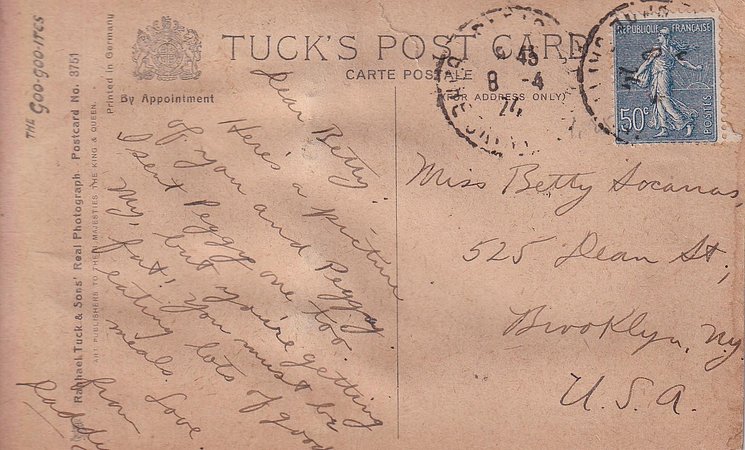 THE GOO-GOO-ITES
Raphael Tuck & Sons' Real Photograph Postcard No. 3751
ART PUBLISHERS TO THEIR MAJESTIES THE KING & QUEEN.
Printed in Germany
By Appointment
TUCK'S POST CARD
CARTE POSTALE
(FOR ADDRESS ONLY)
45
8 -4
24
REPUBLIQUE FRANÇAISE
50c
POSTES
Dear Betty:
Here's a picture
of you and Peggy.
I sent Peggy one too.
My, but you're getting
fat! You must be
eating lots of good
meals. Love
from
Daddy
Miss Betty Socanas,
525 Dean St.,
Brooklyn, NY
U.S.A.